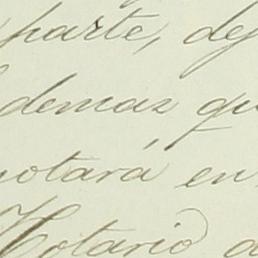 parte, de
demas qu
notará en
Notario d